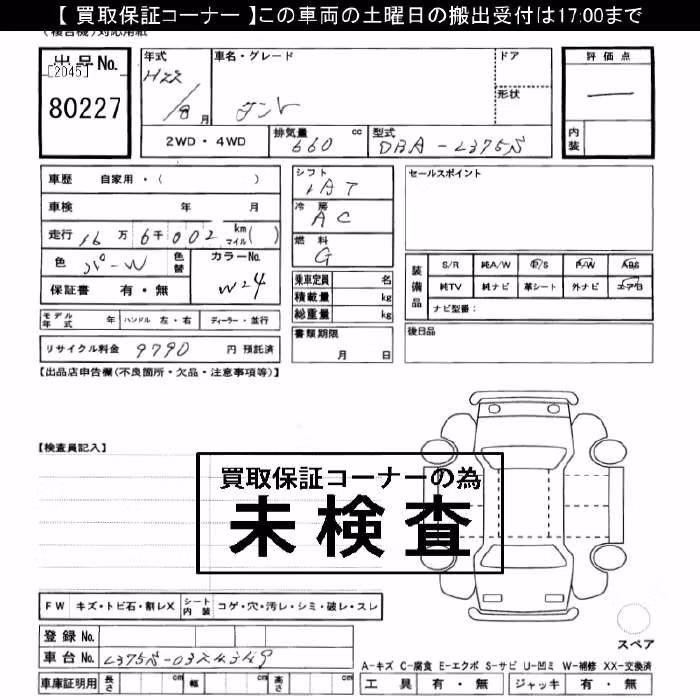 【 買取保証コーナー 】この車両の土曜日の搬出受付は17:00まで
(複合機)対応用紙
出品No. [2045] 80227
年式 H22 / 8月
車名・グレード タント
ドア
形状
評価点 —
内装
2WD・4WD
排気量 660 cc
型式 DBA-L375S
車歴 自家用・( )
車検 年 月
走行 16万 6千 002 km マイル( )
色 パーW 色替
カラーNo. W24
保証書 有・無
シフト IAT
冷房 AC
燃料 G
乗車定員 名
積載量 kg
総重量 kg
セールスポイント
装備品 S/R 純A/W P/S P/W ABS
純TV 純ナビ 革シート 外ナビ エアB
ナビ型番:
モデル年式 年 ハンドル 左・右 ディーラー・並行
書類期限 月 日
後日品
リサイクル料金 9790 円 預託済
【出品店申告欄(不良箇所・欠品・注意事項等)】
【検査員記入】
買取保証コーナーの為
未検査
FW キズ・トビ石・割レX シート内装 コゲ・穴・汚レ・シミ・破レ・スレ
スペア
登録 No.
車台 No. L375S-0324349
A-キズ C-腐食 E-エクボ S-サビ U-凹ミ W-補修 XX-交換済
車庫証明用 長さ cm 幅 cm 高さ cm
工具 有・無 ジャッキ 有・無